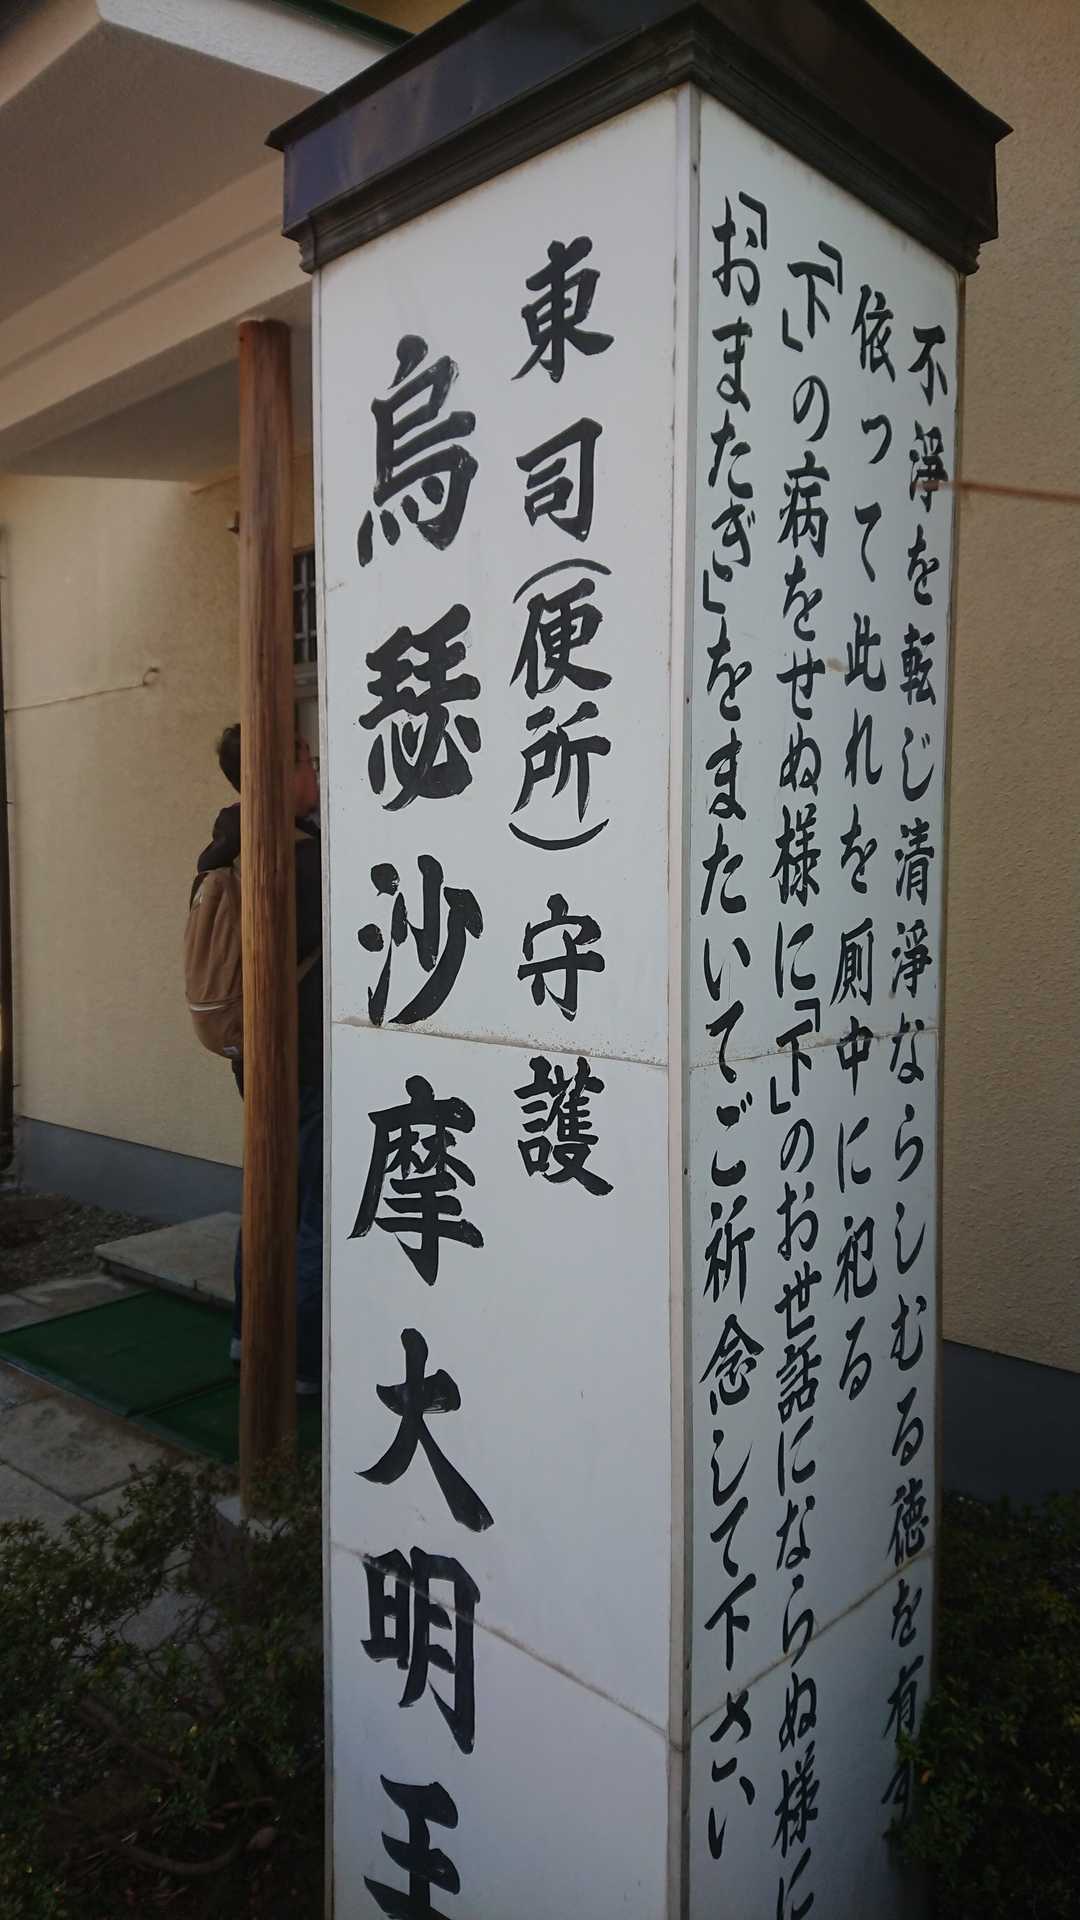 東司(便所)守護
烏瑟沙摩大明王
不淨を転じ清淨ならしむる徳を有す
依って此れを厠中に祀る
「下」の病をせぬ様に「下」のお世話にならぬ様に
「おまたぎ」をまたいでご祈念して下さい